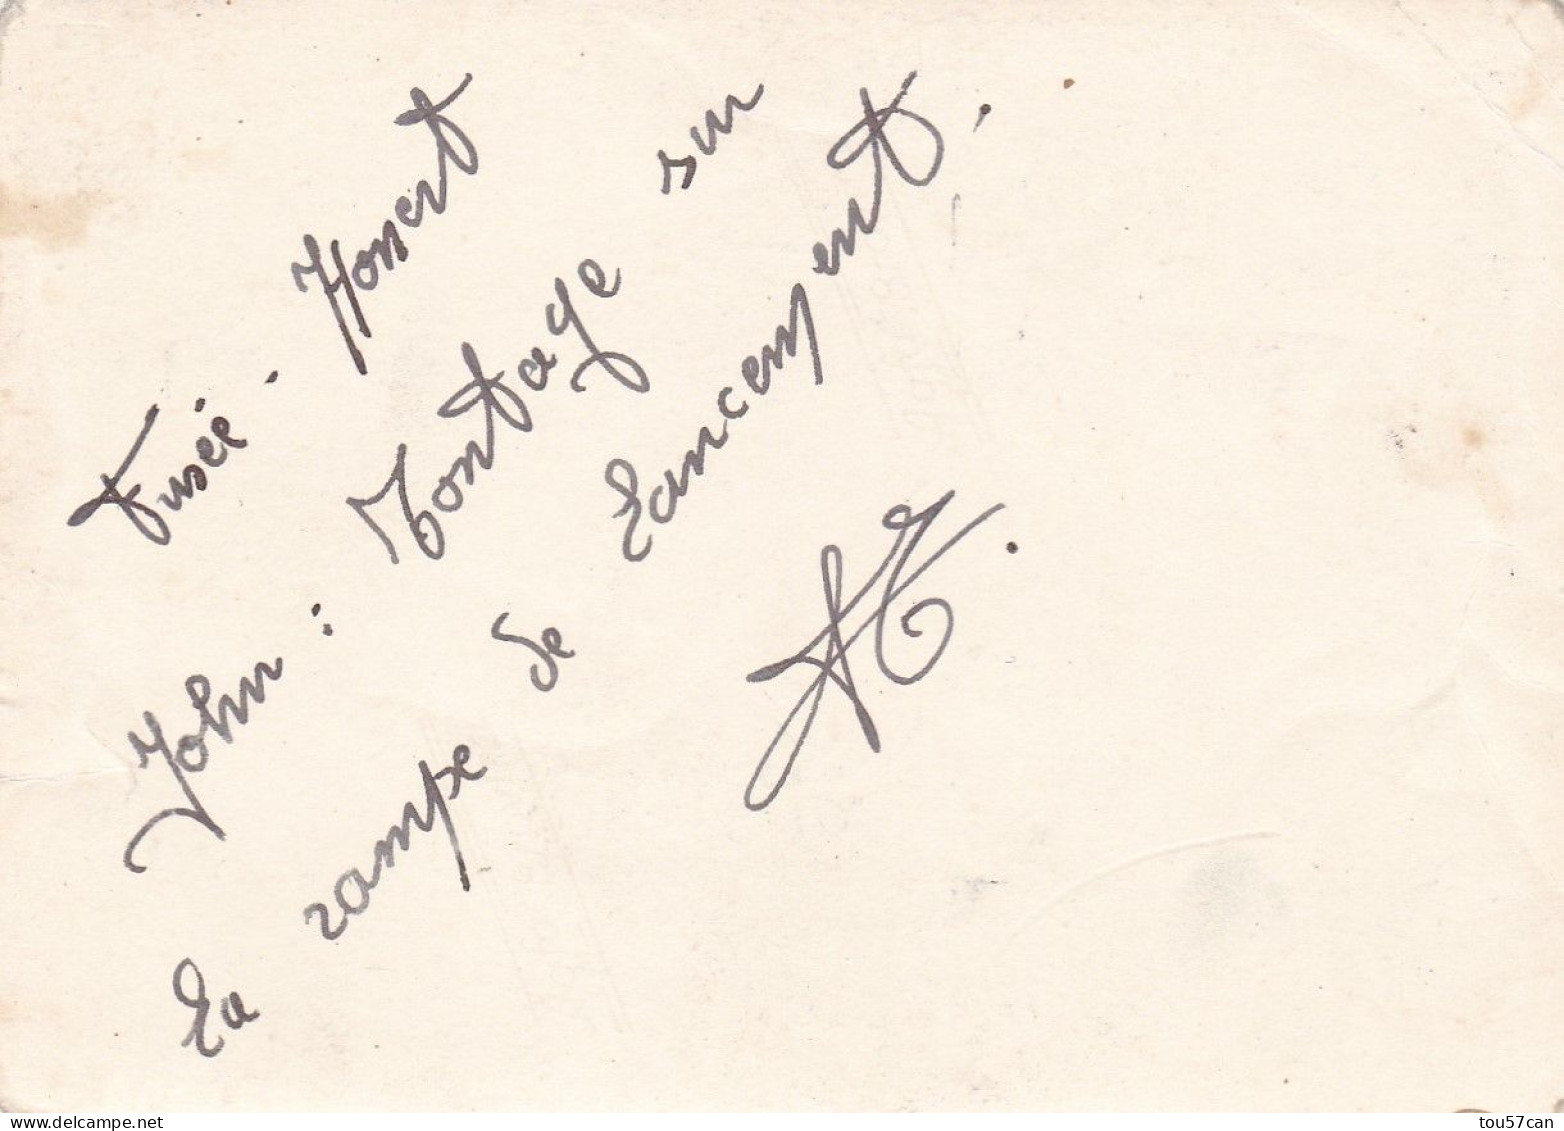 Fusée - Honert
John : Montage sur
La rampe de Lancement.
delcampe.net
tou57can